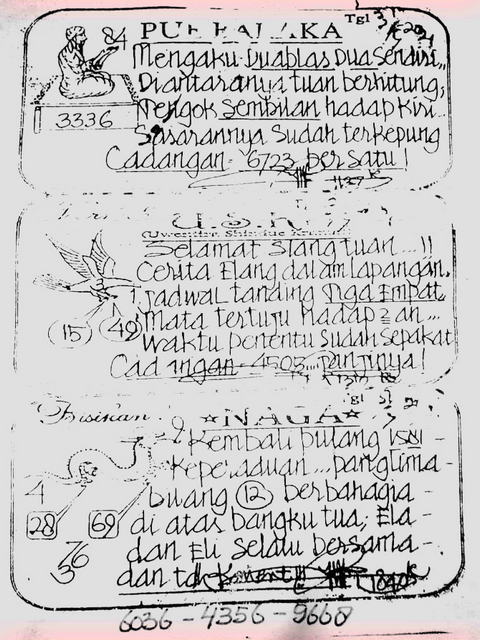 84
Tgl
Mengaku Duaplas Dua sendiri,,
Diantaranya tuan berhitung;
Tengok sembilan hadap kiri...
3336
Sasarannya sudah terkepung
Cadangan - 6723 bersatu!
U.S.K
Selamat siang tuan...!!
Cerita Elang dalam lapangan.
Jadwal tanding Tiga Empat..
Mata tertuju hadap 2 an...
(15) (49)
Waktu penentu sudah sepakat
Cadangan - 4503 panjinya!
Bisikan
★NAGA★
Kembali pulang
Keperaduan... panglima -
4
buang (12) berbahagia -
28 69
di atas bangku tua; Ela -
dan Eli selalu bersama -
76
5
dan tak
6036 - 4356 - 9668